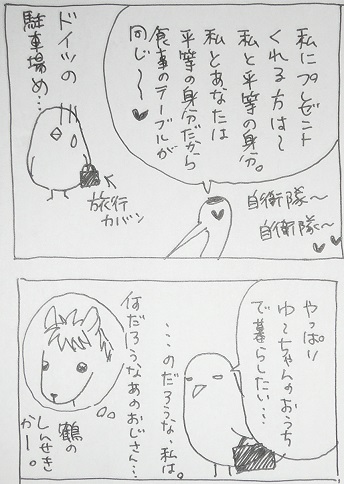 私にプレゼント
くれる方は〜
私と平等の身分。
私とあなたは
平等の身分だから
食事のテーブルが
同じ〜〜♥
ドイツの
駐車場め…
旅行
カバン
自衛隊〜
自衛隊〜
やっぱり
ゆ〜ちゃんのおうち
で暮らしたい…
…このだろうな、私は。
何だろうなあのおじさん…
鶴の
しんせき
かー。